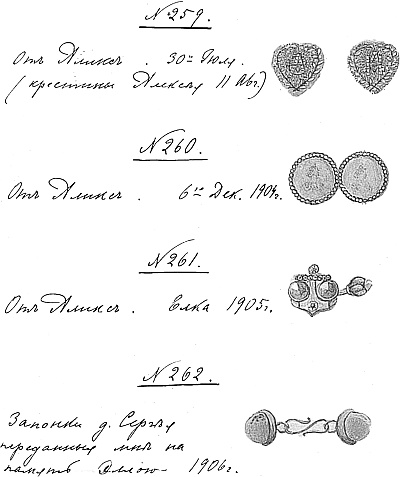 N 259.
Отъ Аликсъ . 30го Іюля.
(крестины Алексѣя 11 Авг.)
N 260.
Отъ Аликсъ . 6го Дек. 1904г.
N 261.
Отъ Аликсъ . Елка 1905г.
N 262.
Запонки д. Сергѣя
переданныя мнѣ на
память Эллою - 1906г.